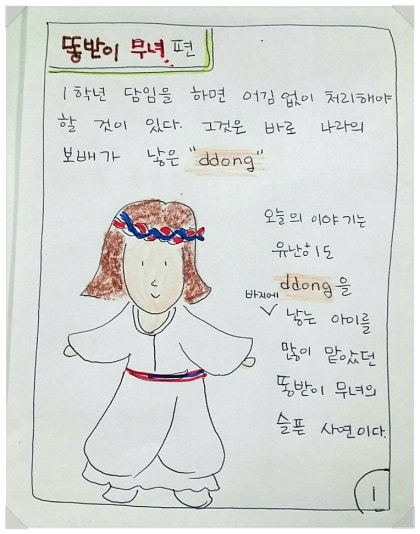 똥받이 무녀 편
1학년 담임을 하면 어김없이 처리해야
할 것이 있다. 그것은 바로 나라의
보배가 낳은 "ddong"
오늘의 이야기는
유난히도
ddong을
바지에
낳는 아이를
많이 맡았던
똥받이 무녀의
슬픈 사연이다.
1